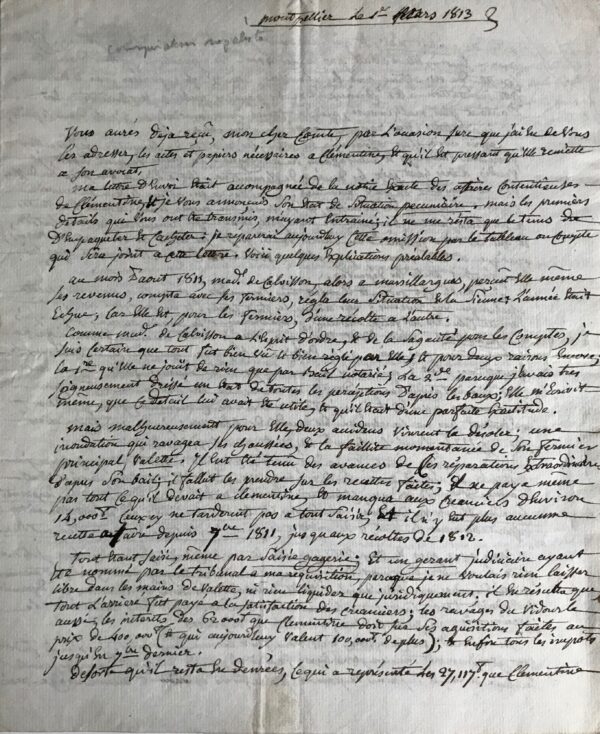 montpellier le 1er Mars 1813
conspirateur royaliste
Vous aurés deja reçu, mon cher Comte, par l'occasion sure que j'ai eu de vous
les adresser, les actes et papiers nécéssaires a Clémentine, et qu'il est pressant qu'elle remette
a son avocat.
ma lettre d'envoi était accompagnée de la notte exacte des affaires Contentieuses
de Clémentine, et je vous annonçais son état de situation pecuniaire. mais les premiers
details qui vous ont été transmis, m'ayant entrainé; il ne me resta que le tems
d'Empaqueter et Cacheter: je reparerai aujourdhuy Cette omission par le tableau ou Compte
qui sera joint a cette lettre. Voici quelques Explications préalables.
au mois d'aout 1811, made de Calvisson, alors a marsillargues, perçut Elle même
ses revenus, compta avec ses fermiers, regla leur situation et la sienne: l'année était
Echue; Car Elle Est pour les fermiers, d'une récolte a l'autre.
Comme made de Calvisson a l'Esprit d'ordre, et de la sagacité pour les Comptes, je
suis certaine que tout fut bien vu et bien réglé par Elle; et pour deux raisons Encore;
la 1re qu'elle ne jouit de rien que par bail notarié; La 2de parceque j'avais très
soigneusement dressé un état de toutes les perceptions d'après les baux; Elle m'Ecrivit
même, que ce detail lui avait été utile, et qu'il était d'une parfaite Exactitude.
mais malheureusement pour Elle, deux accidens vinrent la désoler; une
inondation qui ravagea ses chaussées, et la faillite momentanée de son fermier
principal Valette. Il eut été tenu des avances de ces réparations Extraordinaires
d'après son bail; il fallut les prendre sur les recettes faites; et ne paya meme
pas tout ce qu'il devait a clementine, et manqua aux Creanciers d'Environ
14,000. Ceux cy ne tarderent pas a tout saisir, et il n'y eut plus aucune
recette a faire depuis 7bre 1811, jusqu'aux recoltes de 1812.
tout étant saisi, même par saisie gagerie; Et un gerant judiciaire ayant
été nommé par le tribunal a ma requisition, parceque je ne voulais rien laisser
libre dans les mains de Valette, ni rien liquider que juridiquement, il en resulta que
tout l'arriere fut payé a la satisfaction des creanciers; les ravages du Vidourle
aussi; les interets des 62000 que Clementine doit sur ses aquisitions faites au
prix de 400,000 (et qui aujourdhuy valent 100,000 de plus); et Enfin tous les impots
jusqu'en 7bre dernier.
desorte qu'il resta En denrées, Ce qui a représenté les 27,117 que Clementine